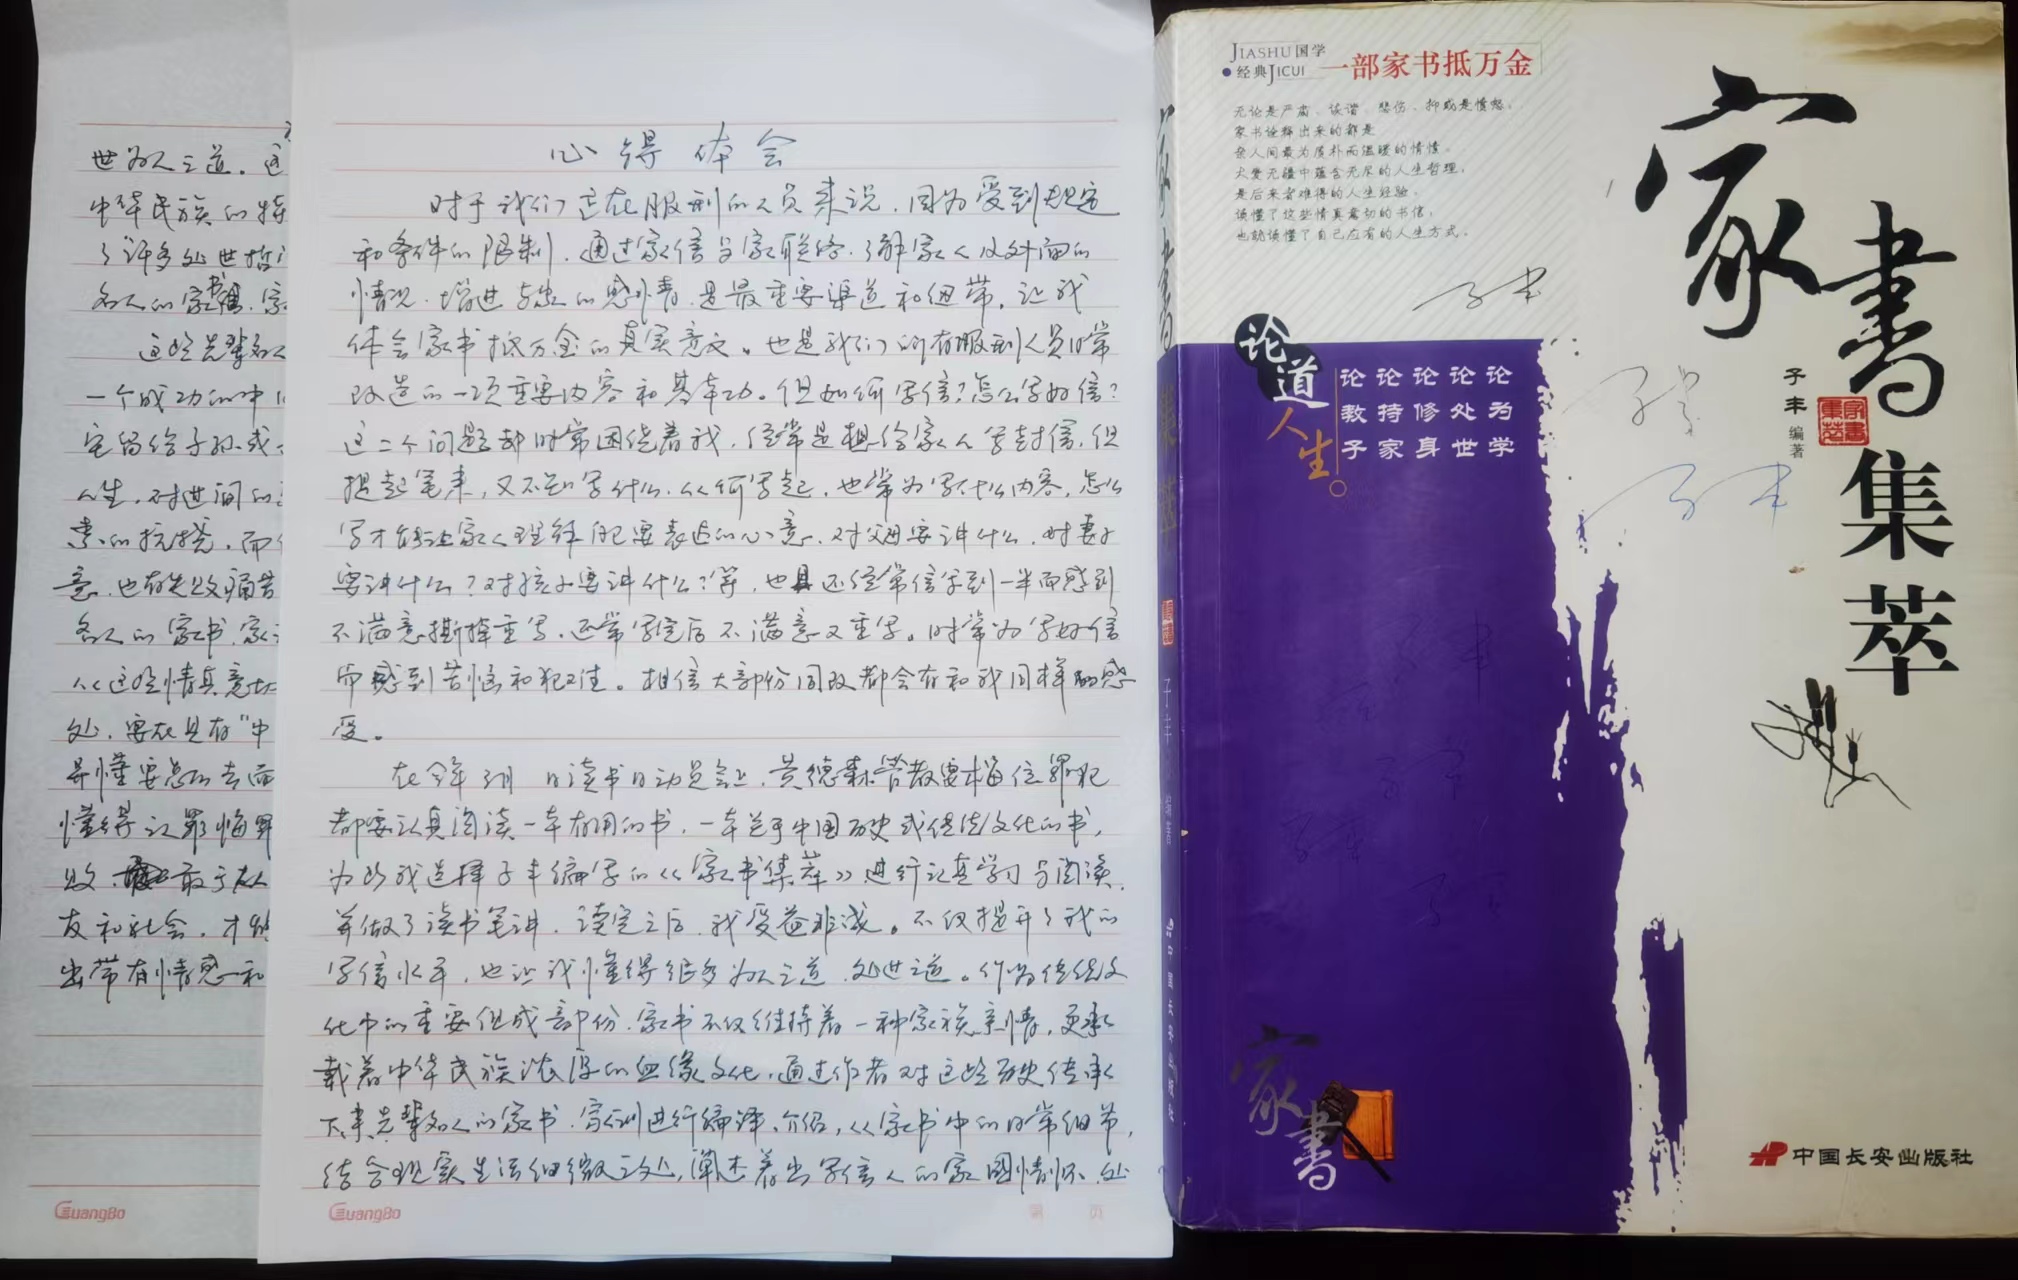 世为人之道。这
中华民族的特
了许多处世哲
名人的家书、家
这些先辈名人
一个成功的中
它留给子孙或
人生，对世间的
素的抗扰，而
意，也有失败痛苦
名人的家书、家
从这些情真意切
处，要在具有“中
并懂要怎么去面
懂得认罪悔罪
败，敢于
友和社会，才能
出带有情感和
GuangBo
心得体会
对于我们正在服刑的人员来说，因为受到规定
和条件的限制，通过家信与家联络，了解家人及外面的
情况，增进与家人的感情，是最重要渠道和纽带，让我
体会家书抵万金的真实意义。也是我们所有服刑人员日常
改造的一项重要内容和基本功。但如何写信？怎么写好信？
这二个问题都时常困绕着我，经常是想给家人写封信，但
提起笔来，又不知写什么，从何写起，也常为写什么内容，怎么
写才能让家人理解自己要表达的心意，对父母要讲什么，对妻子
要讲什么？对孩子要讲什么？等，也还经常信写到一半而感到
不满意撕掉重写，还常写完后不满意又重写。时常为写好信
而感到苦恼和犯难。相信大部份同改都会有和我同样的感
受。
在今年 月 日读书日动员会上，黄德森管教要求每位罪犯
都要认真阅读一本有用的书，一本关于中国历史或传统文化的书，
为此我选择子丰编写的《家书集萃》进行认真学习与阅读，
并做了读书笔记，读完之后，我受益非浅。不仅提升了我的
写信水平，也让我懂得很多为人之道，处世之道。作为传统文
化中的重要组成部份，家书不仅维持着一种家族亲情，更承
载着中华民族浓厚的血缘文化，通过作者对这些历史传承
下来先辈名人的家书、家训进行编译、介绍，从家书中的日常细节，
结合现实生活细微之处，阐述着出写信人的家国情怀、处
GuangBo
第 页
JIASHU国学
经典JICUI
一部家书抵万金
无论是严肃、诙谐、悲伤、抑或是愤怒，
家书诠释出来的都是
亲人间最为质朴而温暖的情愫。
大爱无疆中蕴含无尽的人生哲理，
是后来者难得的人生经验。
读懂了这些情真意切的书信，
也就读懂了自己应有的人生方式。
论道人生。
论教子
论持家
论修身
论处世
论为学
家书
家書集萃
子丰 编著
中国长安出版社
家書集萃
子丰 编著
中国长安出版社